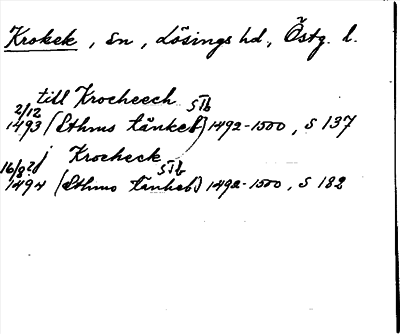 Krokek, sn, Lösings hd, Östg. l.
till Krocheech
2/12 1493 (Sthms tänkeb) STb 1492-1500, S 137
i Krocheck
16/8 1494 (Sthms tänkeb) STb 1492-1500, S 182